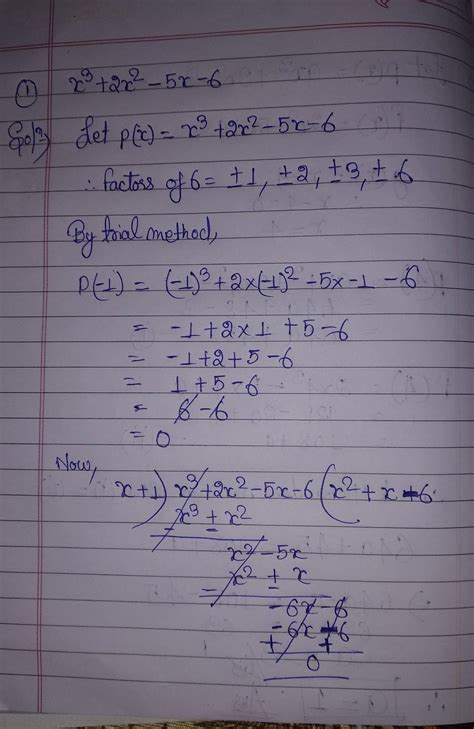 ① x³+2x²-5x-6
Solⁿ) Let p(x) = x³+2x²-5x-6
∴ factors of 6 = ±1, ±2, ±3, ±6
By trial method,
P(-1) = (-1)³+2×(-1)²-5×-1-6
= -1+2×1+5-6
= -1+2+5-6
= 1+5-6
= 6-6
= 0
Now,
x+1) x³+2x²-5x-6 (x²+x-6
x³ + x²
-
x²-5x
x² + x
- -
-6x-6
-6x-6
+ +
0